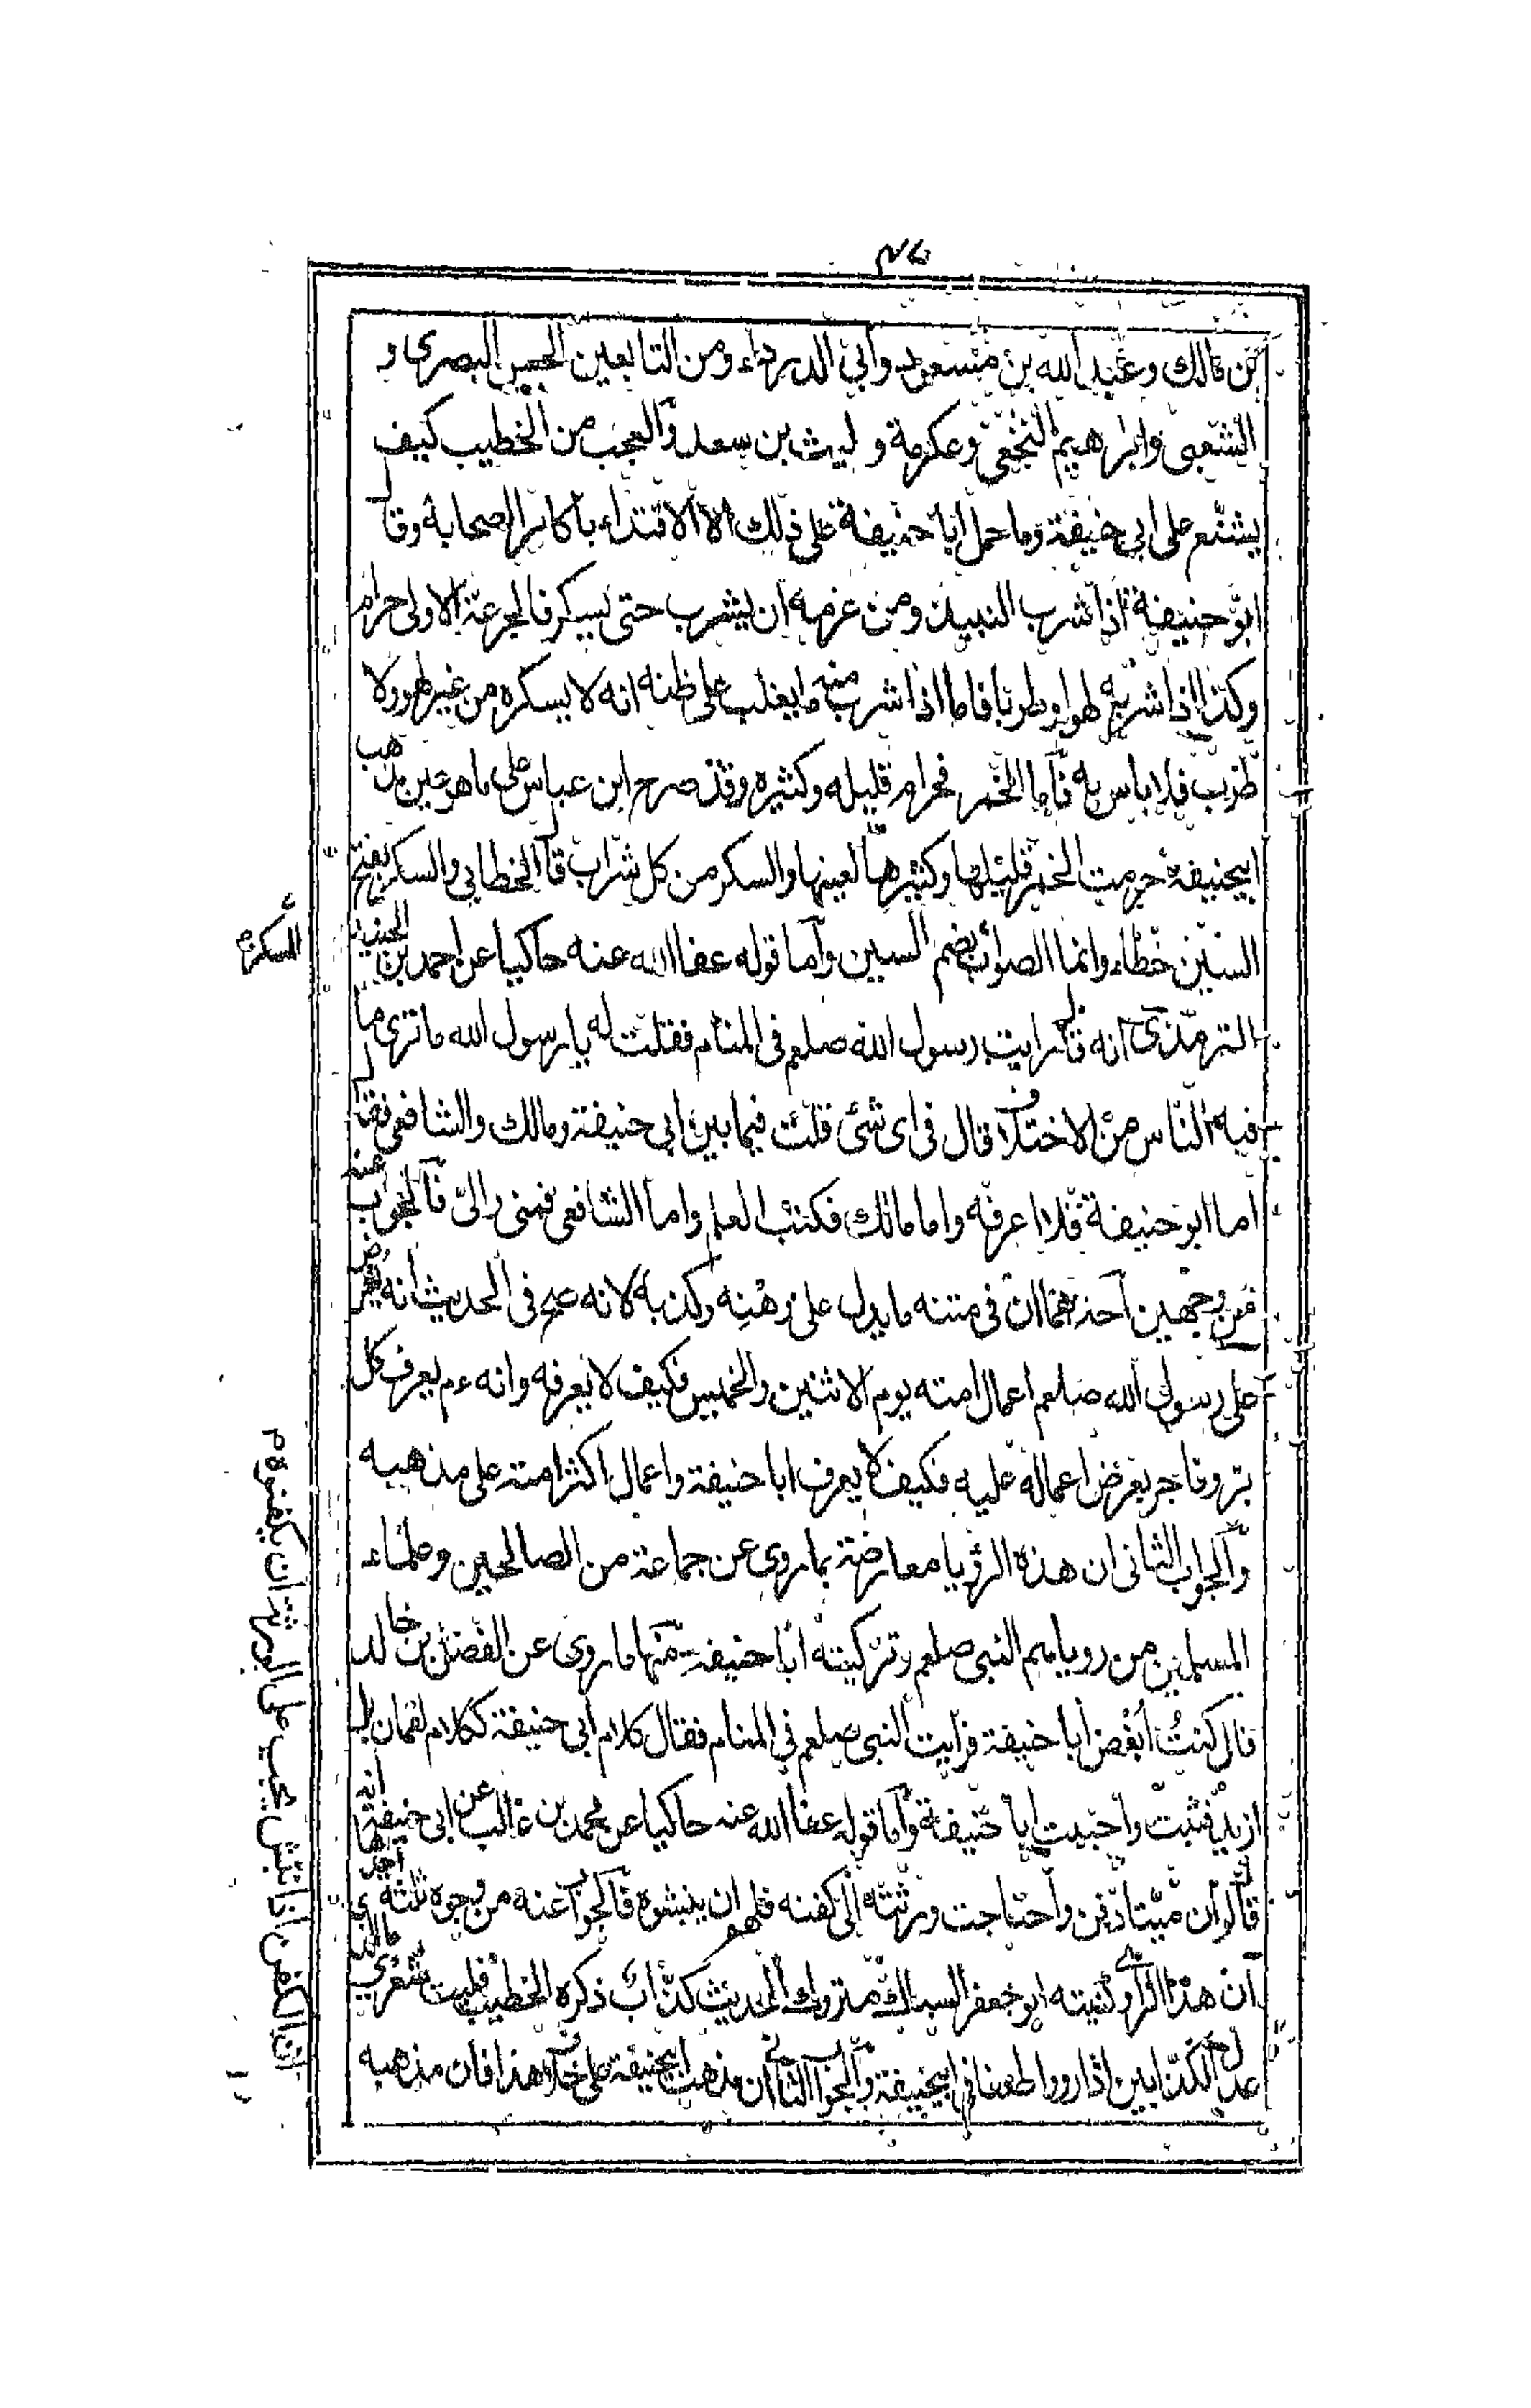 بن مالك وعبد الله بن مسعود وابي الدرداء ومن التابعين الحسن البصرى و
الشعبى وابراهيم النخعى وعكرمة وليث بن سعد والعجب من الخطيب كيف
يشنع على ابى حنيفة وما حمل ابا حنيفة على ذلك الا الاقتداء باكابر الصحابة وقال
ابو حنيفة اذا شرب النبيذ ومن عزمه ان يشرب حتى يسكر فالجرعة الاولى حرام
وكذا اذا شربه لهوا وطربا فاما اذا شرب منه ما يغلب على ظنه انه لا يسكره من غير لهو ولا
طرب فلا باس به فاما الخمر فحرام قليله وكثيره وقد صرح ابن عباس على ما هو عين مذهب
ابيحنيفة حرمت الخمر قليلها وكثيرها لعينها والسكر من كل شراب قال الخطابي والسكر بفتح
السين خطاء وانما الصواب بضم السين واما قوله عفا الله عنه حاكيا عن احمد بن
الترمذى انه قال رايت رسول الله صلعم فى المنام فقلت له يا رسول الله ما ترى ما
فيه الناس من الاختلاف قال فى اى شئ قلت فيما بين ابى حنيفة ومالك والشافعى فقال
اما ابو حنيفة فلا اعرفه واما مالك فكتب العلم واما الشافعى فمنى والىّ فالجواب عنه
من وجهين احدهما ان فى متنه ما يدل على وهنه وكذبه لانه صح فى الحديث انه تعرض
على رسول الله صلعم اعمال امته يوم الاثنين والخميس فكيف لا يعرفه وانه ءم يعرف كل
بر وفاجر يعرض اعماله عليه فكيف لا يعرف ابا حنيفة واعمال اكثر امته على مذهبه
والجواب الثانى ان هذه الرؤيا معارضة بما روى عن جماعة من الصالحين وعلماء
المسلمين من رويا هم النبى صلعم وتزكيته ابا حنيفة منها ما روى عن الفضل بن خالد
قال كنتُ اُبغض ابا حنيفة فرايت النبى صلعم فى المنام فقال كلام ابى حنيفة ككلام لقمان بل
ازيد فتبت واحببت ابا حنيفة واما قوله عفا الله عنه حاكيا عن محمد بن غالب عن ابى حنيفة انه
قال لو ان ميتا دفن واحتاجت ورثته الى كفنه فلهم ان ينبشوه فالجواب عنه من وجوه ثلثة احدها
ان هذا الراوى كنيته ابو جعفر السباك متروك الحديث كذاب ذكره الخطيب فليت شعرى ما باله
عدل الكذابين اذا رووا طعنا فى ابيحنيفة والجواب الثانى ان مذهب ابيحنيفة على خلاف هذا فان مذهبه
السكر
ان الكفن اذا نبش يجب على الورثة ان يكفنوه م